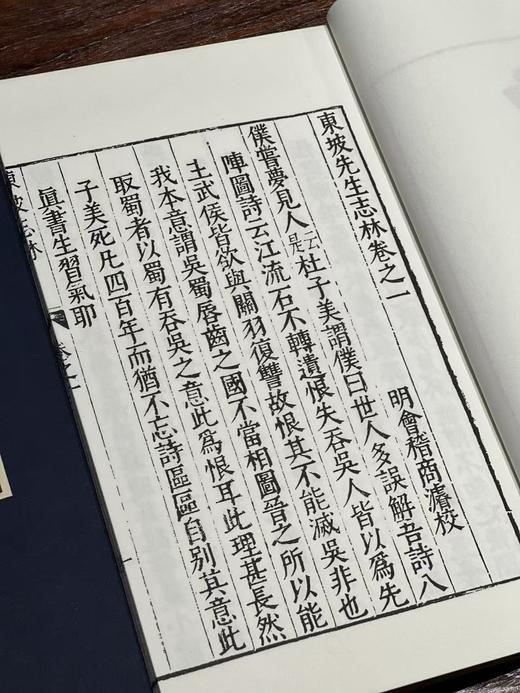 東坡先生志林卷之一
明會稽商濬校
僕嘗夢見人云是杜子美謂僕曰世人多誤解吾詩八
陣圖詩云江流石不轉遺恨失吞吳人皆以為先
主武侯皆欲與關羽復讐故恨其不能滅吳非也
我本意謂吳蜀唇齒之國不當相圖晉之所以能
取蜀者以蜀有吞吳之意此為恨耳此理甚長然
子美死凡四百年而猶不忘詩區區自别其意此
真書生習氣耶
東坡志林
卷之一